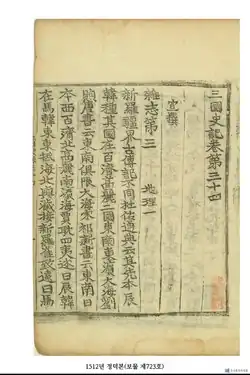 三國史記卷第三十四
宣撰
雜志第三 地理一
新羅疆界古傳記不同杜佑通典云其先本辰
韓種其國在百濟高麗二國東南東濱大海劉
煦唐書云東南俱限大海宋祁新書云東南日
本西百濟北高麗南濱海賈耽四夷述曰辰韓
在馬韓東東抵海北與濊接新羅崔致遠曰馬
1512년 정덕본(보물 제723호)